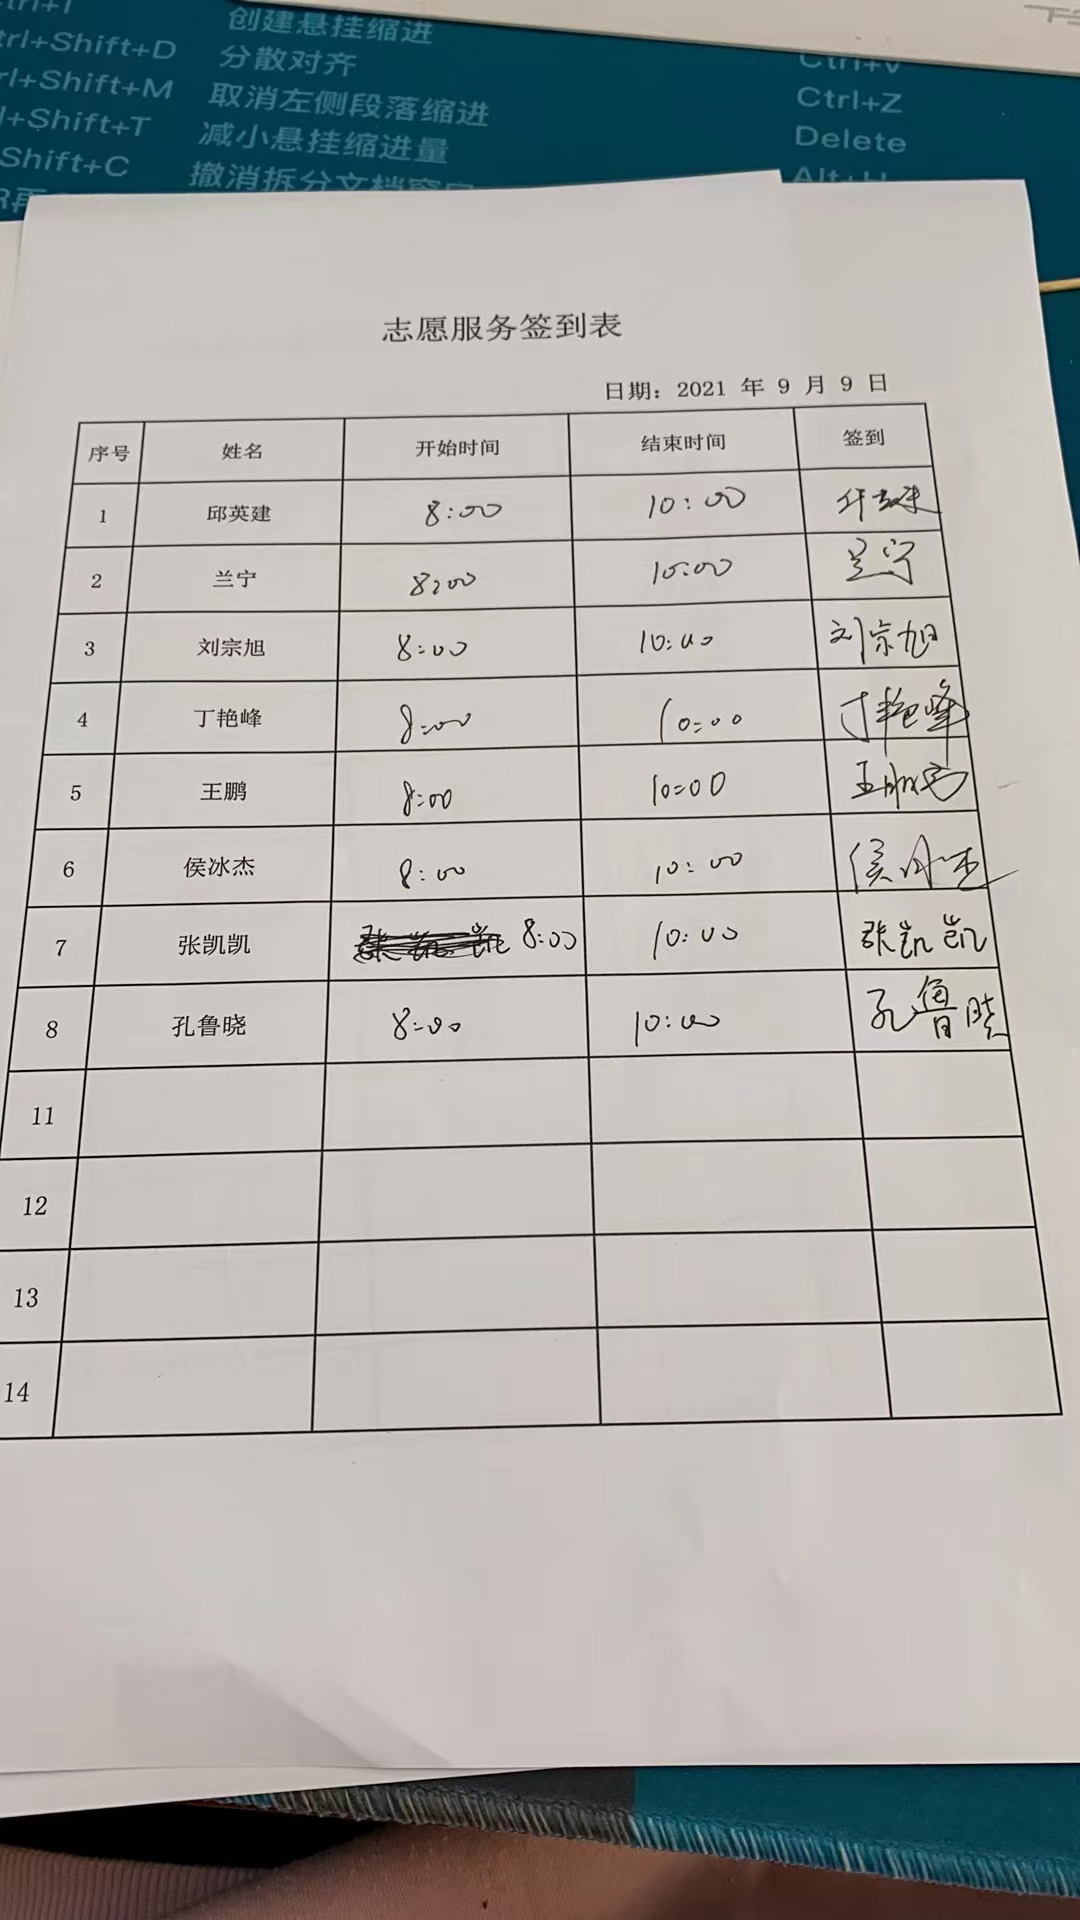 创建悬挂缩进
trl+Shift+D 分散对齐
Ctrl+V
rl+Shift+M 取消左侧段落缩进
Ctrl+Z
l+Shift+T 减小悬挂缩进量
Delete
Shift+C
撤消拆分文档窗口
志愿服务签到表
日期：2021 年 9 月 9 日
序号 姓名 开始时间 结束时间 签到
1 邱英建 8:00 10:00
2 兰宁 8:00 10:00 兰宁
3 刘宗旭 8:00 10:00 刘宗旭
4 丁艳峰 8:00 10:00 丁艳峰
5 王鹏 8:00 10:00 王鹏
6 侯冰杰 8:00 10:00 侯冰杰
7 张凯凯 8:00 10:00 张凯凯
8 孔鲁晓 8:00 10:00 孔鲁晓
11
12
13
14